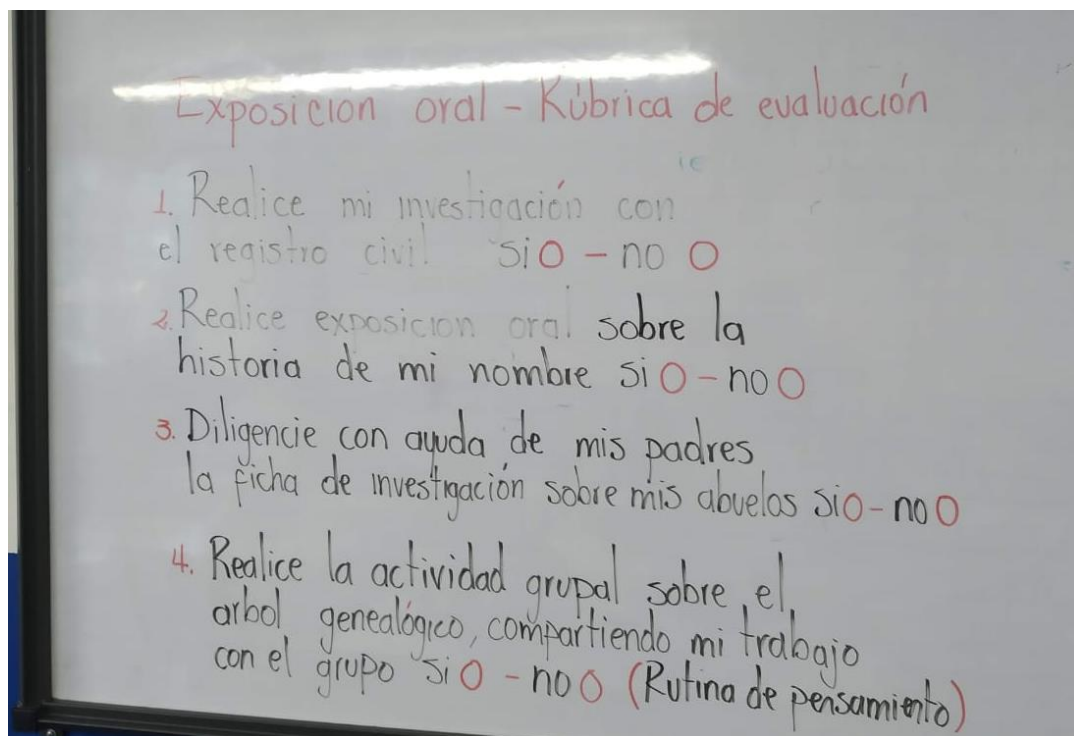 Exposicion oral - Rúbrica de evaluación
1. Realice mi investigación con
el registro civil si O - no O
2. Realice exposicion oral sobre la
historia de mi nombre si O - no O
3. Diligencie con ayuda de mis padres
la ficha de investigación sobre mis abuelos si O - no O
4. Realice la actividad grupal sobre el
arbol genealógico, compartiendo mi trabajo
con el grupo si O - no O (Rutina de pensamiento)